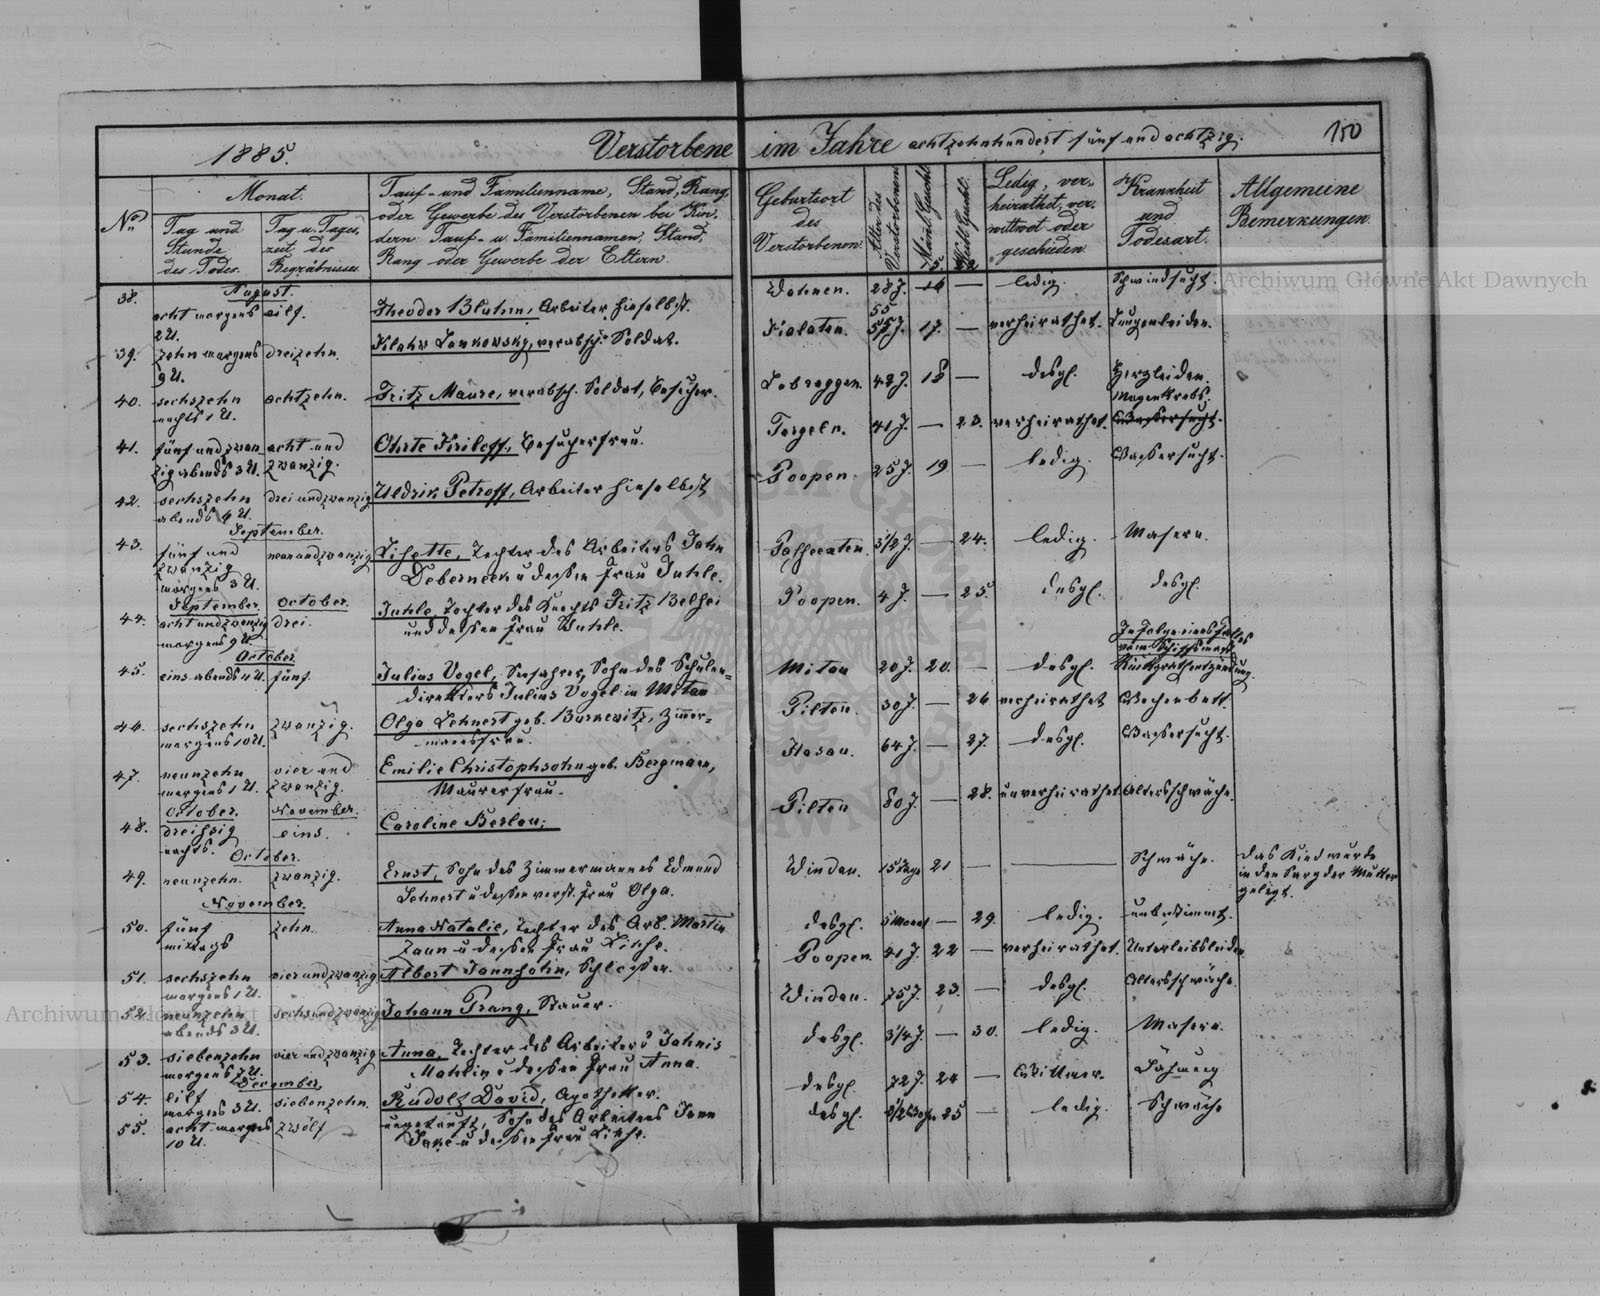 1885.
Verstorbene im Jahre achtzehnhundert fünf und achtzig.
150
No
Monat.
Tag und Stunde des Todes.
Tag u. Tageszeit des Begräbnisses.
Tauf- und Familienname, Stand, Rang,
oder Gewerbe des Verstorbenen bei Kin-
dern Tauf- u. Familiennamen, Stand,
Rang oder Gewerbe der Eltern.
Geburtsort
des
Verstorbenen.
Alter des Verstorbenen
Mänl. Geschl.
Weibl. Geschl.
Ledig, ver-
heirathet, ver-
wittwet oder
geschieden.
Krankheit
und
Todesart.
Allgemeine
Bemerkungen.
August.
38. acht morgens 2 U. eilf. Theodor Bluhm, Arbeiter hieselbst. Wahnen. 28 J. — ledig. Schwindsucht.
39. zehn morgens 9 U. dreizehn. Lankowsky, verabsch. Soldat. 55 J. 17. — verheirathet. Lungenleiden.
40. sechszehn nachts 1 U. achtzehn. Fritz Maure, verabsch. Soldat, Besucher. 48 J. 18 — desgl. Herzleiden.
41. fünf und zwanzig abends 3 U. acht und zwanzig. Ohrte Kriloff, Besucherfrau. Targeln. 41 J. — 23. verheirathet. Magenkrebs. Wassersucht.
42. sechszehn abends 4 U. drei und zwanzig Uldrik Petroff, Arbeiter hieselbst Poopen. 25 J. 19 — ledig. Wassersucht.
September.
43. fünf und zwanzig morgens 3 U. neun und zwanzig Lisette, Tochter des Arbeiters Jahn
Deberneek u dessen Frau Juhle. 3 1/2 J. — 24. ledig. Masern.
September. October.
44. acht und zwanzig morgens 9 U. drei. Juhle, Tochter des Knechts Fritz Belsei
und dessen Frau Wuhle. Poopen. 4 J. — 25. desgl. desgl.
October
45. eins abends 11 U. fünf. Julius Vogel, Seefahrer, Sohn des Schulen-
direktors Julius Vogel in Mitau Mitau 20 J. 20. — desgl. In Folge eines Falles vom Schiffsmast Rückgrathentzündung.
46. sechszehn morgens 10 U. zwanzig. Olga Lehnert geb. Burnewitz, Zimer-
mansfrau. Pilten 30 J. — 26 verheirathet Wochenbett.
47. neunzehn morgens 1 U. vier und zwanzig. Emilie Christophsohn geb. Bergmann,
Maurerfrau. Hasau. 64 J. — 27. desgl. Wassersucht.
October. November.
48. dreissig nachts. eins. Caroline Berlau; Pilten 80 J. — 28. unverheirathet Altersschwäche.
October.
49. neunzehn. zwanzig. Ernst, Sohn des Zimmermannes Edmund
Lehnert u dessen verst. Frau Olga. Windau. 15 Tage 21 — — Schwäche. Das Kind wurde
in den Sarg der Mutter
gelegt.
November.
50. fünf mittags zehn. Anna Natalie, Tochter des Arb. Martin
Zaun u dessen Frau Lihse. desgl. 5 Monat — 29. ledig. unbestimmt.
51. sechszehn morgens 1 U. vier und zwanzig Albert Jannsohn, Schlosser. Poopen 41 J. 22 — verheirathet. Unterleibsleiden
52. neunzehn abends 3 U. sechs und zwanzig Johann Prang, Stauer. Windau. 75 J. 23. — desgl. Altersschwäche.
53. siebenzehn morgens 7 U. vier und zwanzig Anna, Tochter des Arbeiters Jahnis
Mahlin u dessen Frau Anna. desgl. 3/4 J. — 30. ledig. Masern.
December.
54. eilf morgens 3 U. siebenzehn. Rudolf David, Apotheker. desgl. 72 J. 24 — Wittwer. Lähmung
55. acht morgens 10 U. zwölf ungetauft, Sohn des Arbeiters Jann
u dessen Frau Lihse. desgl. 25 — ledig. Schwäche
Archiwum Główne Akt Dawnych
Archiwum Główne Akt Dawnych